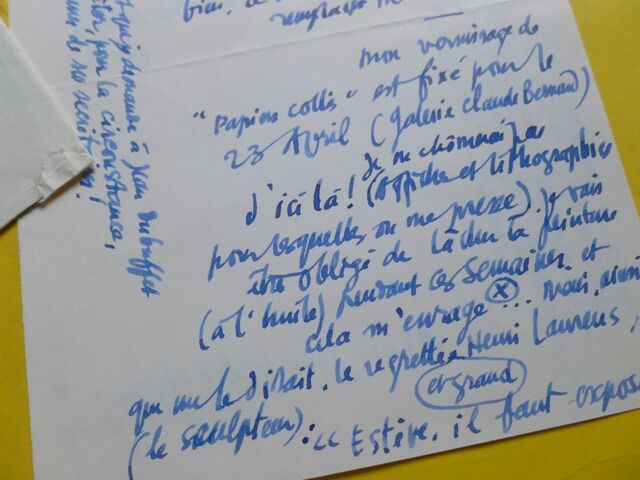 bien. Le
remplacer
mon vernissage de
"Papiers collés" est fixé pour le
23 Avril (Galerie Claude Bernard)
d'ici là! Je ne chômerai pas
(Affiches et lithographies
pour lesquelles on me presse). Je vais
être obligé de lâcher la peinture
(à l'huile) pendant ces semaines et
cela m'enrage (X)... Mais, ainsi
que me le disait, le regretté Henri Laurens,
et grand
(le sculpteur): "Estève, il faut expos
demande à Jean Dubuffet
pour la circonstance,
un de ses secrétaires!